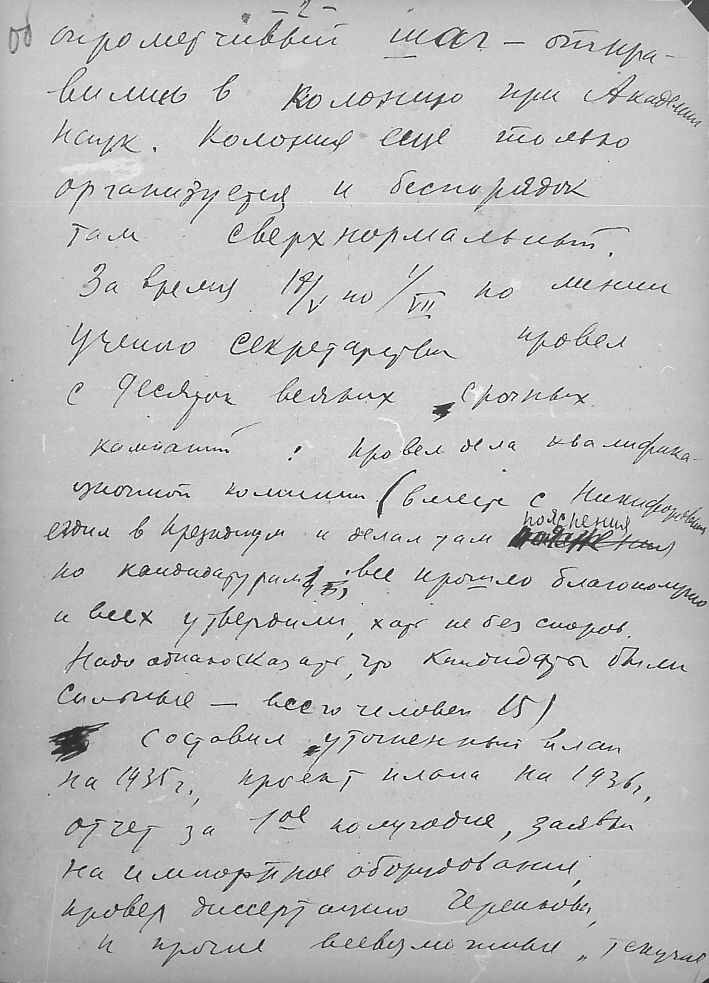 -2-
об
опрометчивый шаг – отпра-
вились в колонию при Академии
Наук. Колония еще только
организуется и беспорядок
там сверхнормальный.
За время 19/V по 1/VII по линии
ученого секретарства провел
с десяток всяких срочных
кампаний: провел дела квалифика-
ционной комиссии (вместе с Никифоровым
ездил в Президиум и делал там пояснения
по кандидатурам, все прошло благополучно
и всех утвердили, хотя не без споров.
Надо однако сказать, что кандидаты были
сильные – всего человек 15)
составил уточненный план
на 1935 г., проект плана на 1936 г.,
отчет за 1ое полугодие, заявки
на импортное оборудование,
провел диссертацию Черенкова,
и прочие всевозможные „текучие